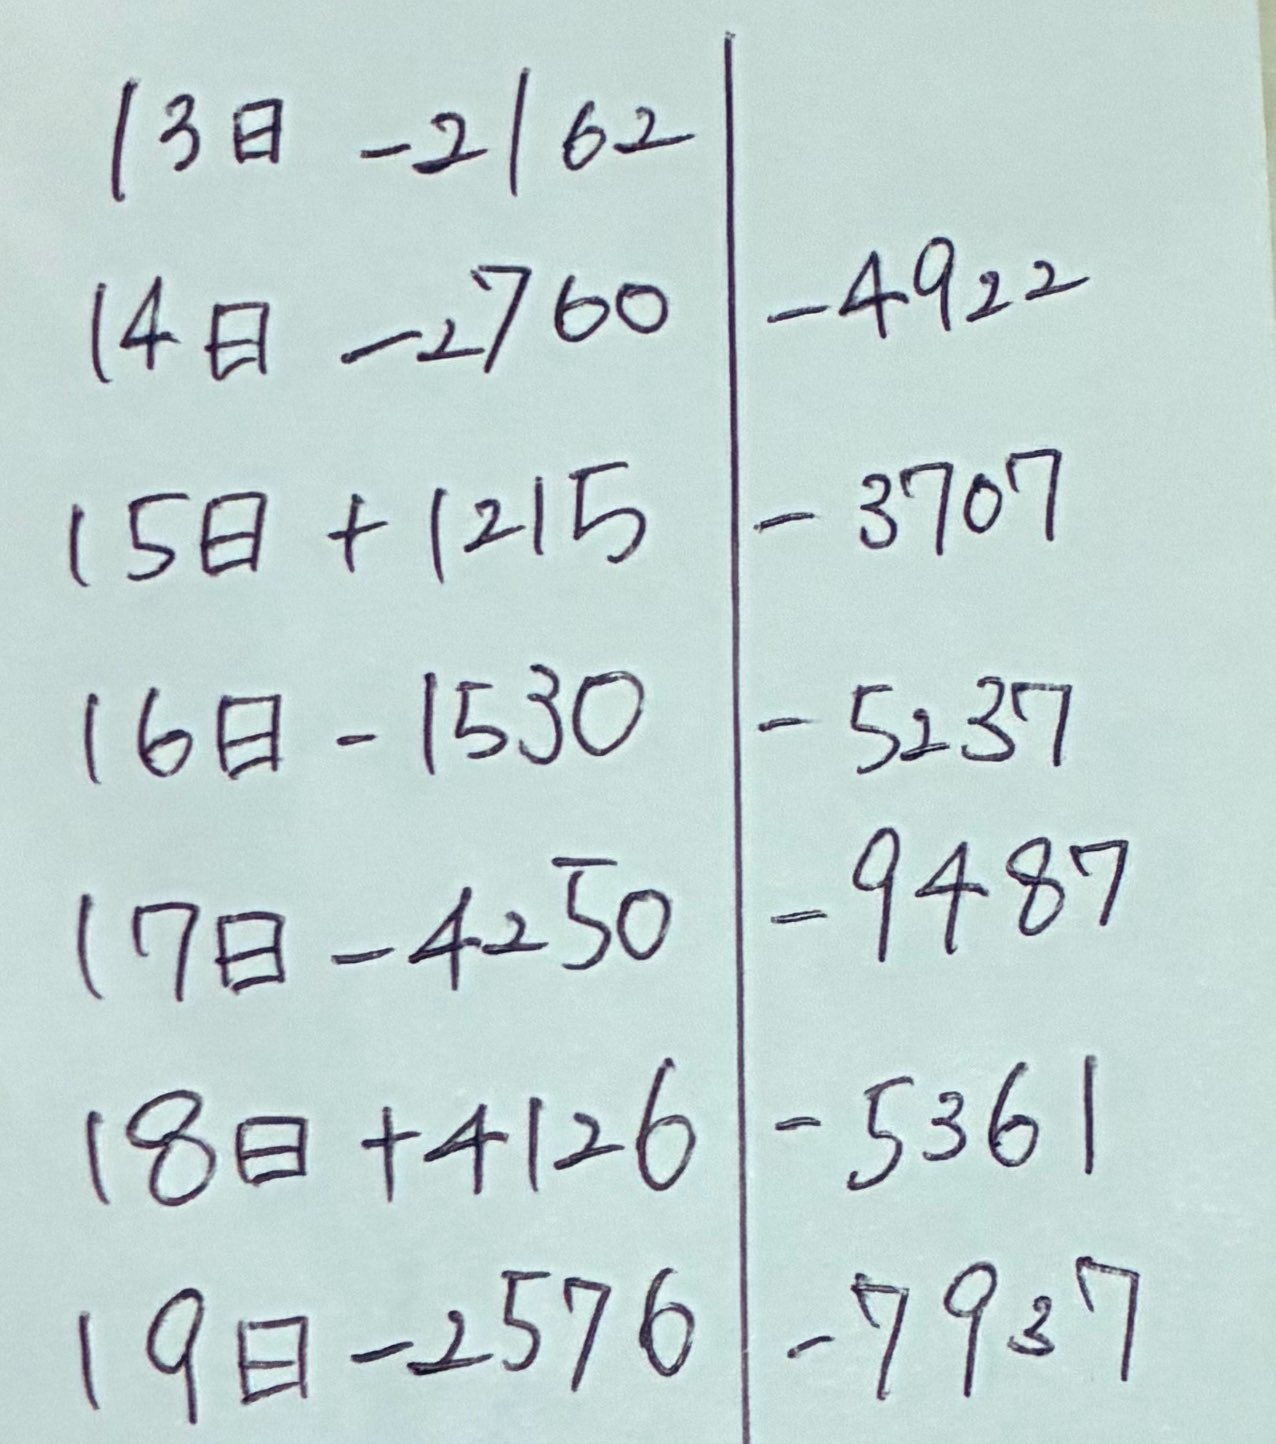 13日 -2162
14日 -2760 -4922
15日 +1215 -3707
16日 -1530 -5237
17日 -4250 -9487
18日 +4126 -5361
19日 -2576 -7937